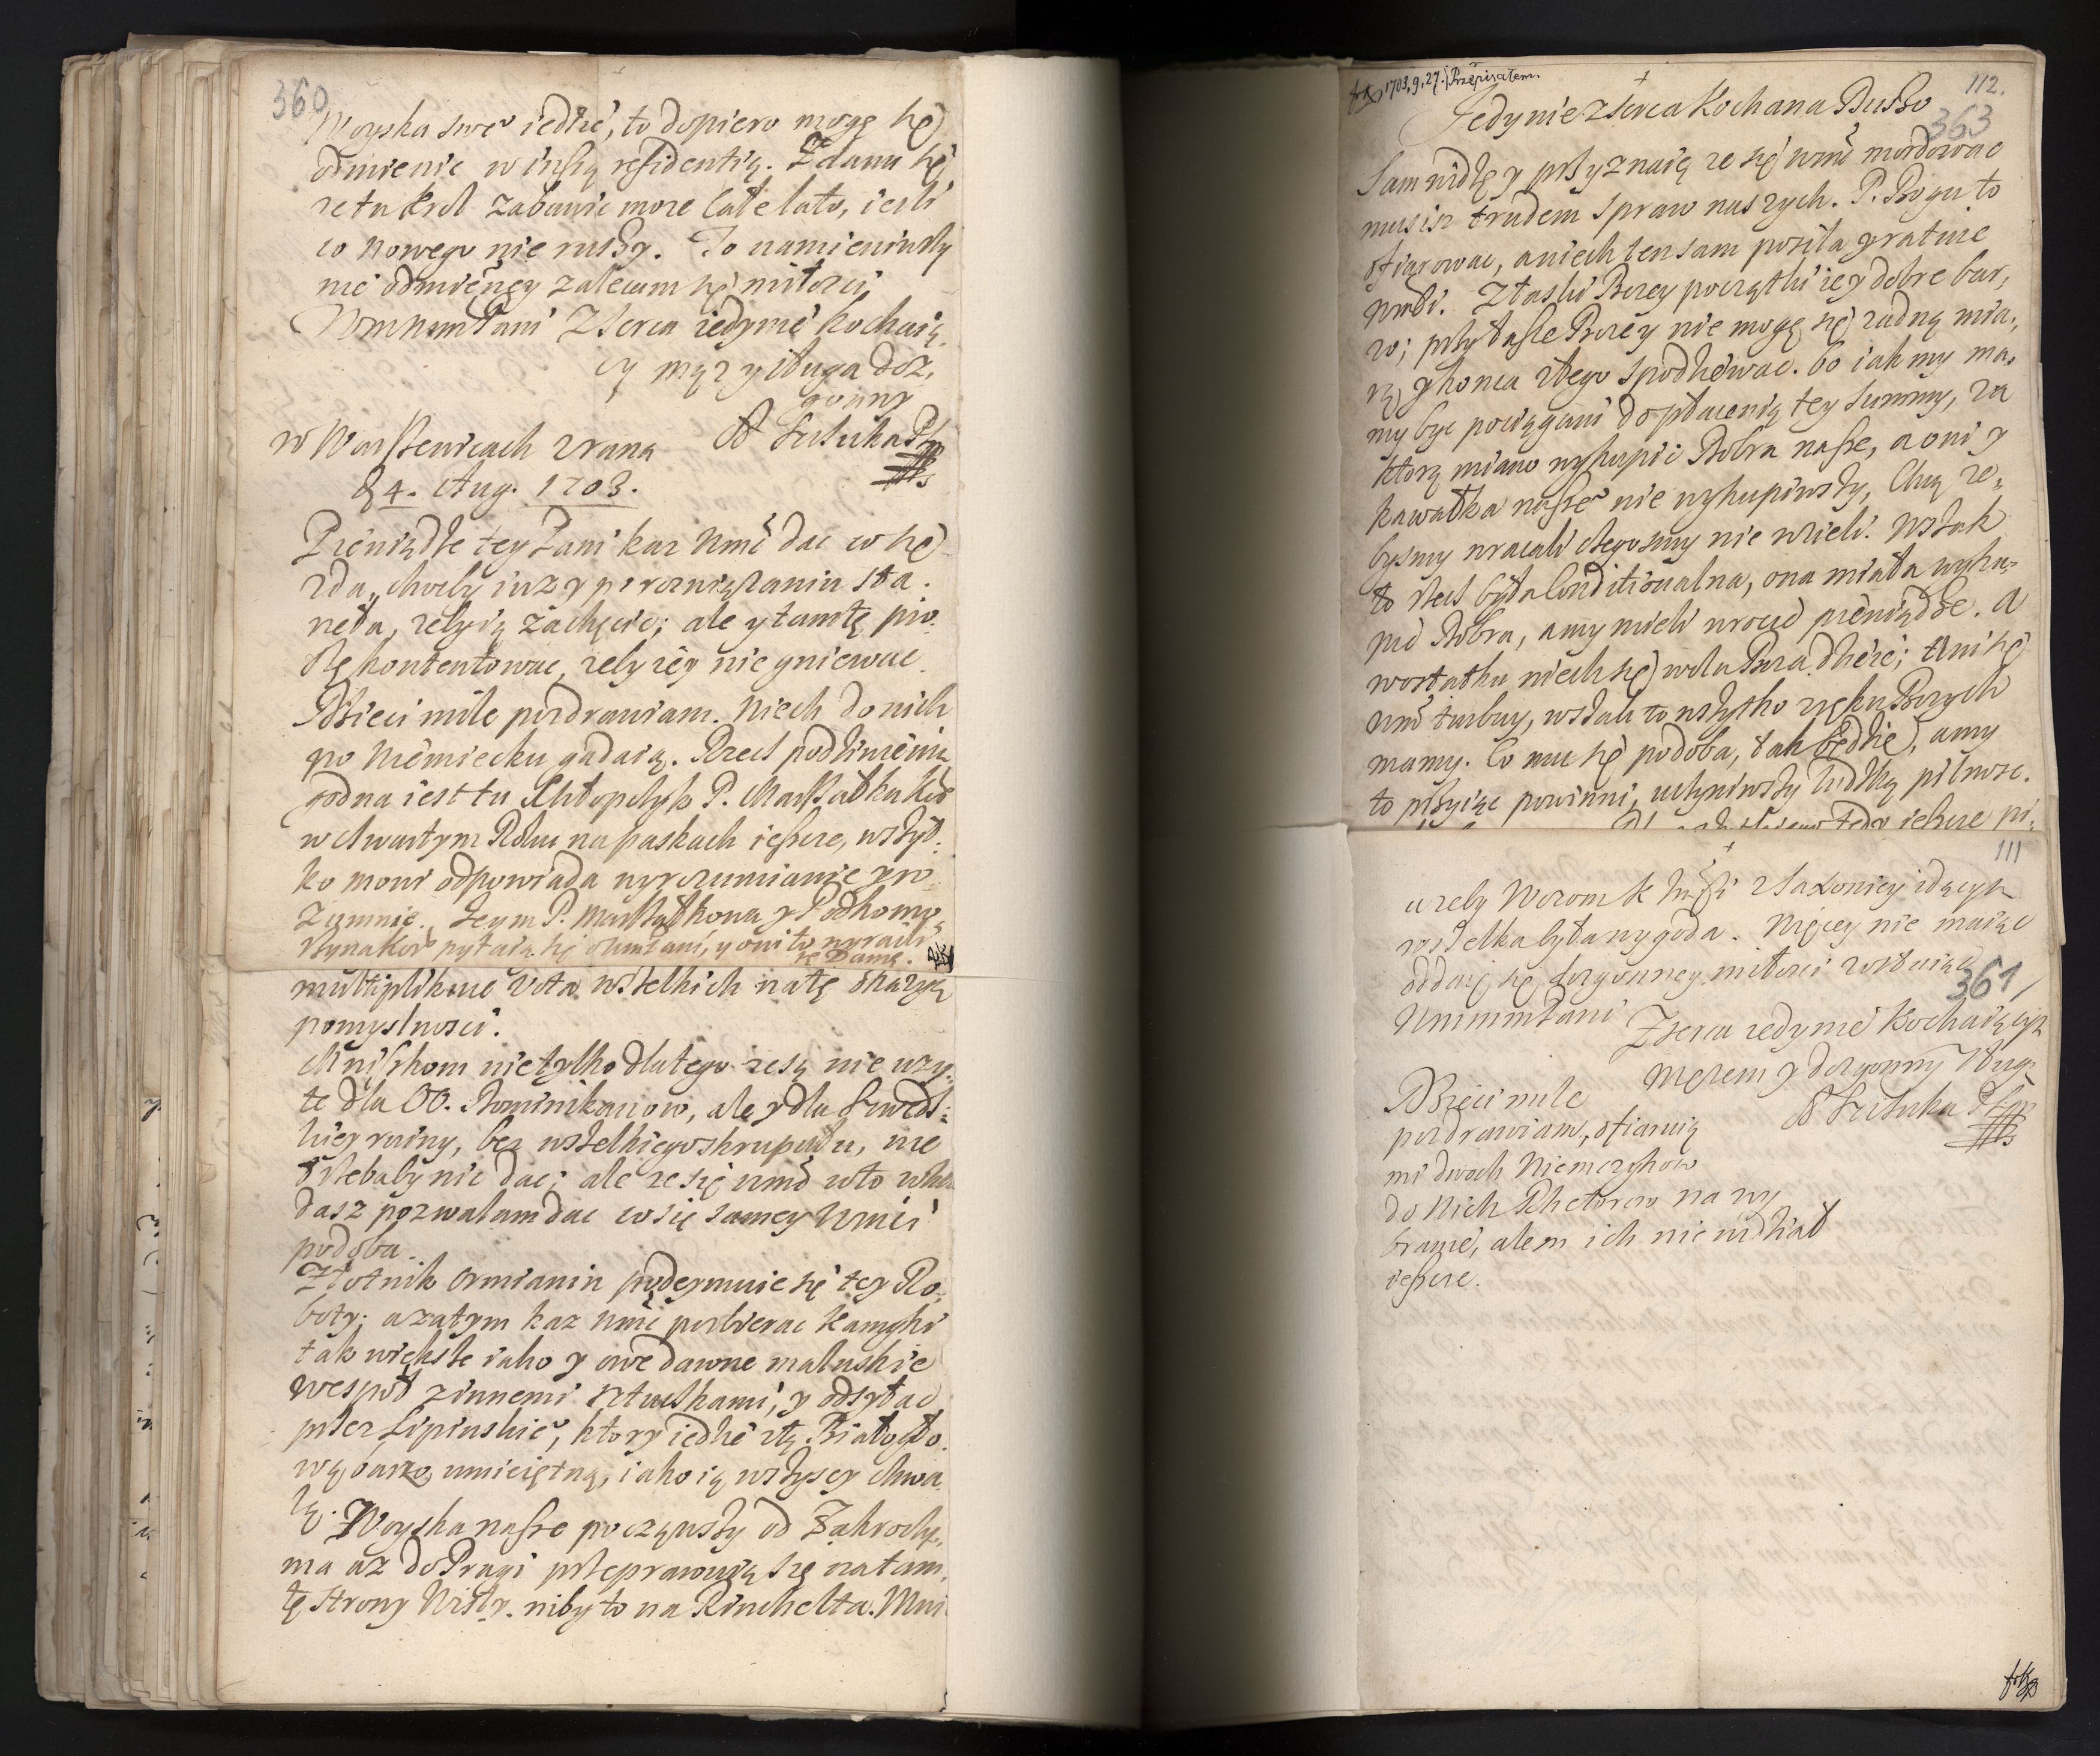 360
Woyska swe iedzie, to dopiero mogę się
odmienic w inszą residentią. Zdanu się
ze tu krol zabawic moze całe lato, iesli
co nowego nie ruszy. To namieniwszy
nie odmienney zalecam się miłosci
WmmmPani Zserca iedynie kochaią
cy mąz y sługa doz,
gonny
w Warszewicach zrana
84. Aug. 1703.
Pieniądze tey Pani kaz Wmć dac co się
zda, chocby iuz y po rozwiązaniu sta.
neła, zeby ią zachęcic; ale y tamtę pro.
szę kontentowac, zeby iey nie gniewac.
Dzieci mile pozdrawiam. Niech do nich
po Niemiecku gadaią. Rzecz podziwienia
godna iest tu Chłopczyk P. Marszałka
w chwartym Roku na paskach ieszcze, wszyt.
ko mowi odpowiada wyrozumianie y ro
zumnie. Zeym P. Marszałkona y Podkomo,
pytaią się y oni to
się Damę.
multiplikuie Vota wszelkich natę okazyą
pomyslnosci.
Mniszkom nie tylko dlatego ze są nie uzy.
te dla OO. Dominikanow, ale y dla Szwedz:
kiey ruiny, bez wszelkiego skrupułu, nie
trzebaby nic dac; ale ze się Wmć wto wkła
dasz pozwalam dac co się samey Wmci
podoba.
Złotnik Ormianin podeymuie się tey Ro,
boty; a zatym kaz Wmć pozbierac kamyki
tak większe iako y owe dawne maluskie
wespoł zinnemi sztuczkami, y odsyłac
przez Lipinskie, ktory iedzie ztą Białogło.
wą, barzo umieiętną, iako ią wszyscy chwa.
lą. Woyska nasze począwszy od Zakroczy,
ma az do Pragi przeprawuią się na tam,
tę strony Wisły. niby to na Rincheltą. Mni
1703, 9, 27. Przepisałem.
112.
363
Jedynie zserca Kochana Duszo
Sam widzę y przyznaię ze się Wmć mordowac
musisz trudem spraw naszych. P. Bogu to
ofiarowac, a niech ten sam posila y ratuie
Wmći. Złaski Bozey początki iey dobre bar,
zo; przy łasce Bozey nie mogę się zadną mia,
rą y konca złego spodziewac. bo iak my ma,
my byc pociągani do płacenią tey summy, za
ktorą miano wykupic Dobra nasze, a oni y
kawałka nasze nie wykupiwszy, chcą ze,
bysmy wracali czegosmy nie wzieli. Wszak
to rzecz była conditionalna, ona miała wyku,
pic Dobra, a my mieli wrocic pieniądze. A
wostatku niech się wola Pana dzieie; ani się
Wmć turbuy, wszak to wszytko zręku Bozych
mamy. Co mu się podoba, tak będzie, a my
to przyiąc powinni, uczyniwszy ludzką pilnosc.
tedy ieszcze pi,
111
a zeby Wozom k zSaxoniey idącym
wszelka była wygoda. Więcey nie maiąc
oddaię się dozgonney miłosci zostaiąc
361
WmmmPani Zserca iedynie Kochaiącym
Męzem y dozgonnym sługą
Dzieci mile
pozdrawiam, ofiaruią
mi dwoch Niemczykow
do Nich Rhetorow na wy
branie, alem ich nie widział
ieszcze.